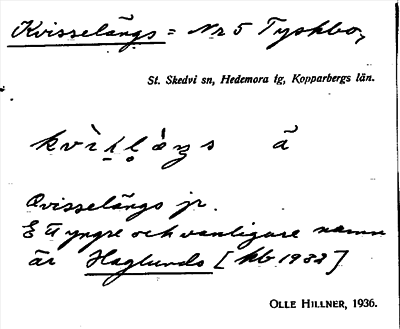 Kvisselängs = Nr 5 Tyskbo,
St. Skedvi sn, Hedemora tg, Kopparbergs län.
ä
Qvisselängs jr.
Ett yngre och vanligare namn
är Haglunds [kb 1932]
OLLE HILLNER, 1936.